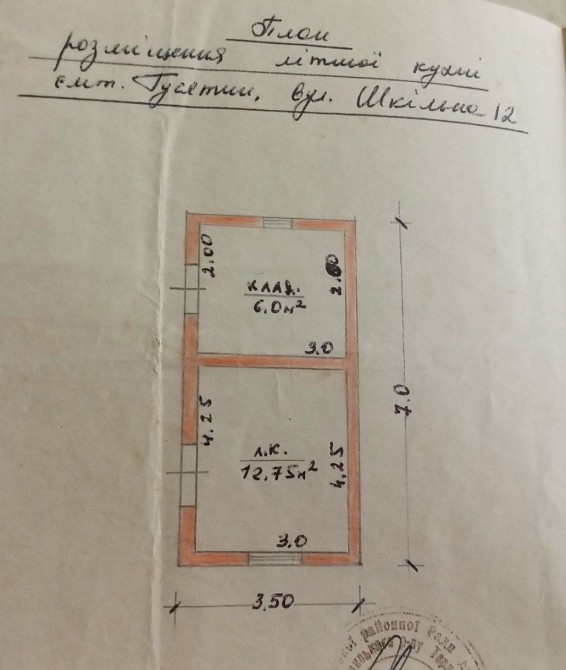 План
розміщення літньої кухні
смт. Гусятин, вул. Шкільна 12
2.00
клад.
6.0м²
2.00
3.0
4.25
л.к.
12.75м²
4.25
3.0
7.0
3.50
районної Ради